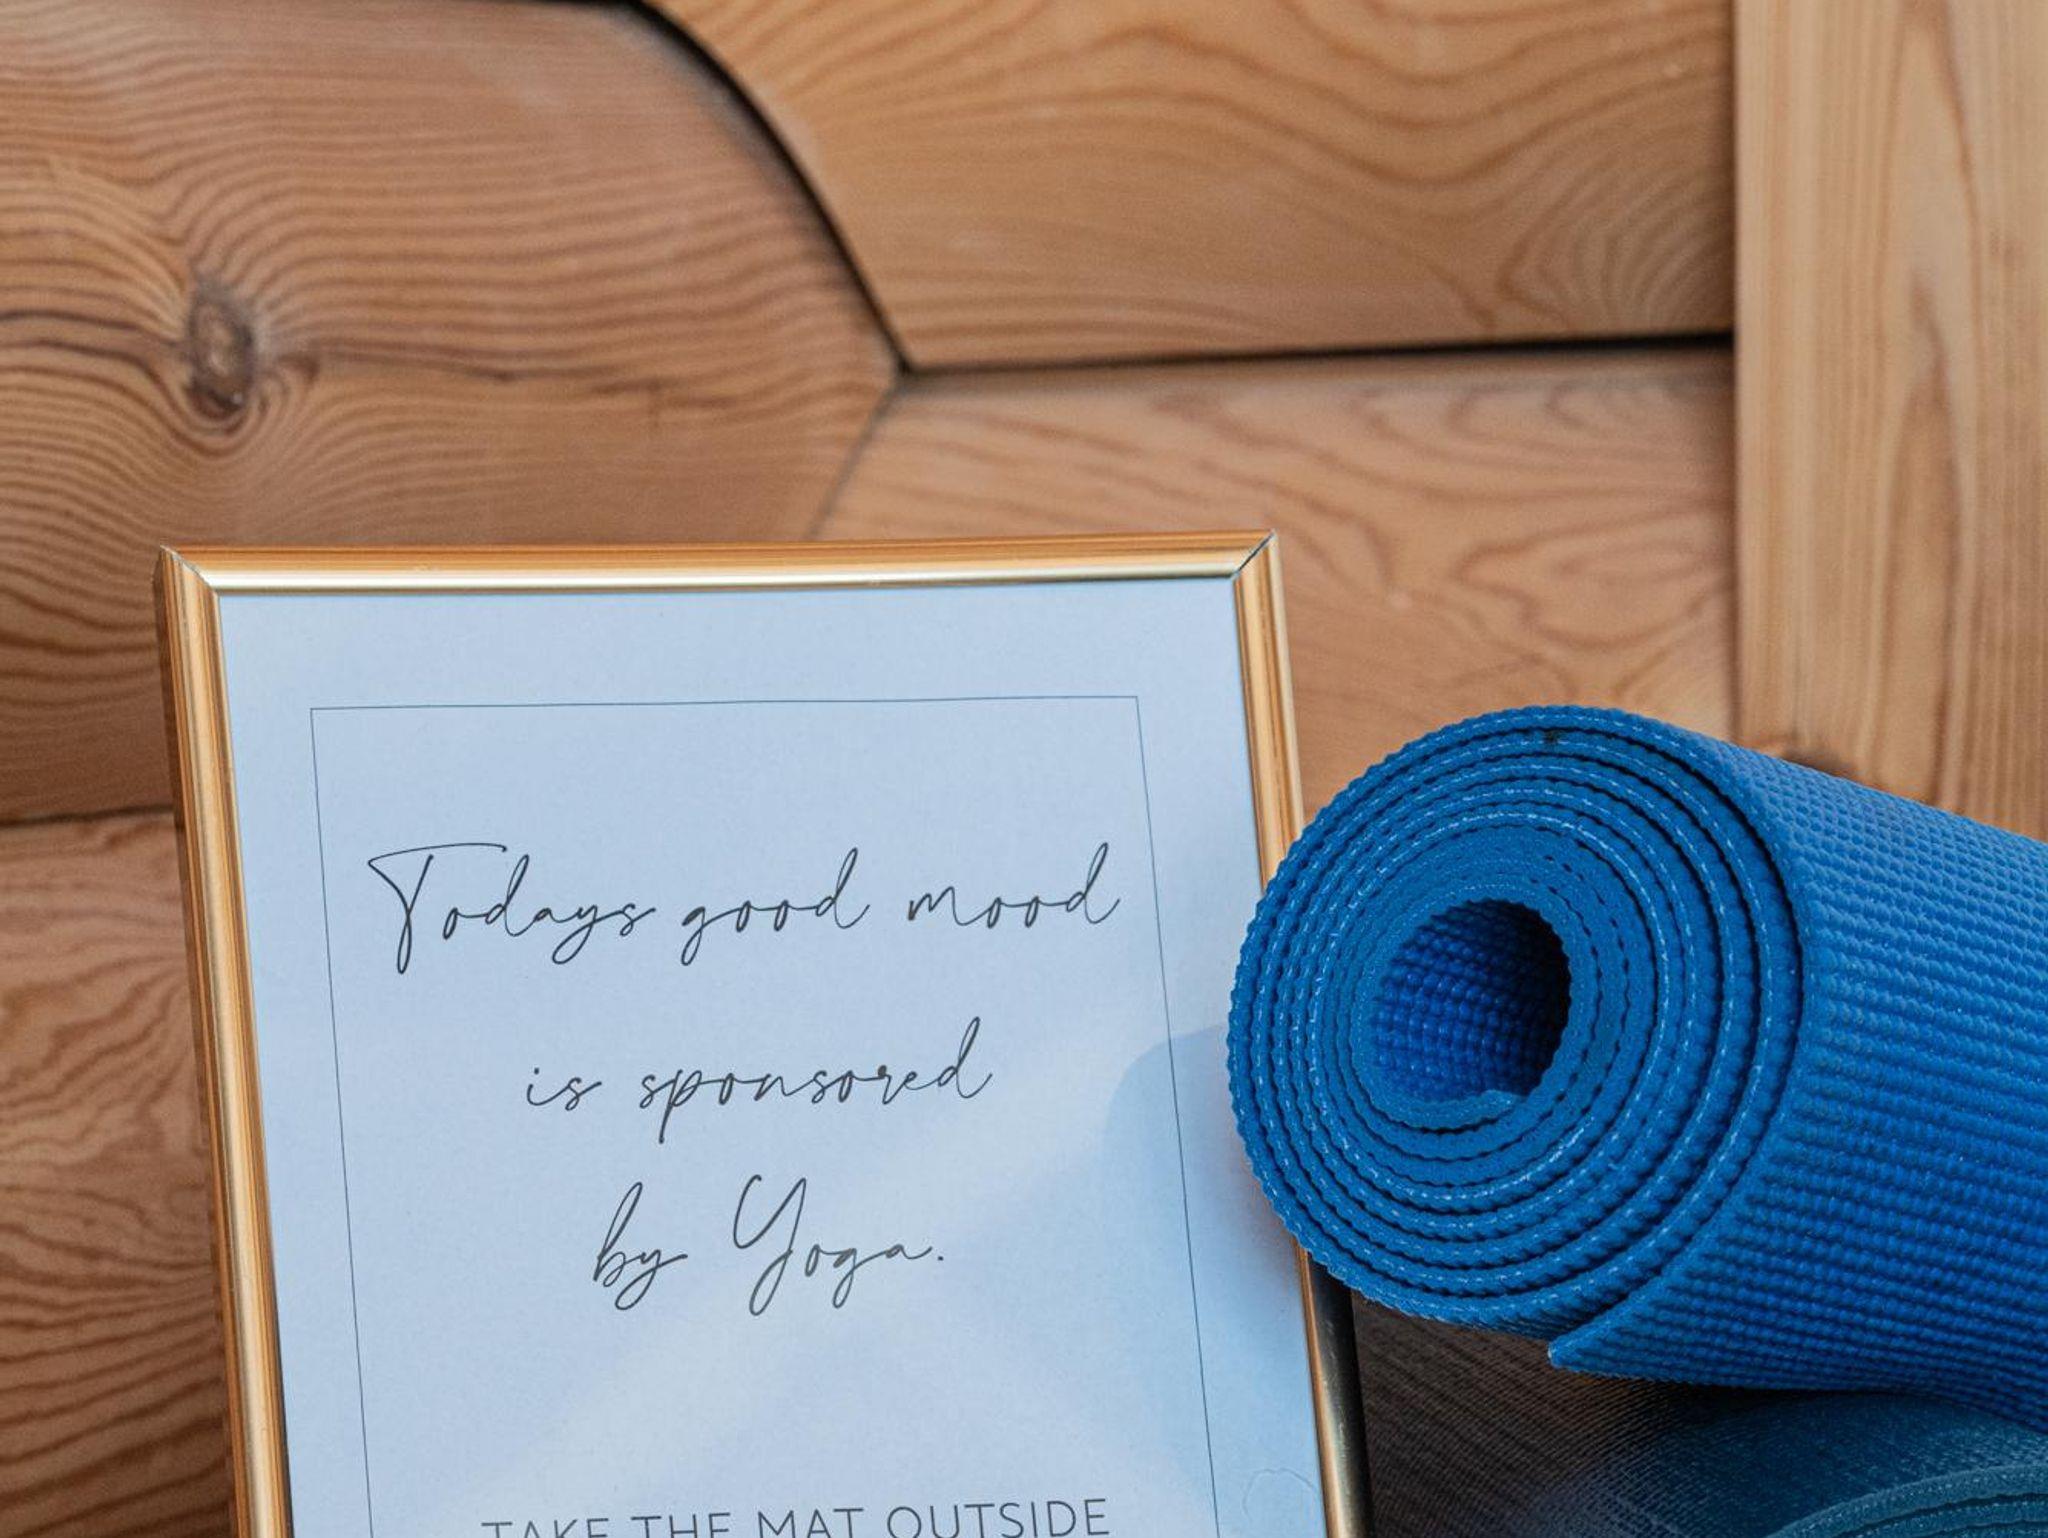 Todays good mood
is sponsored
by Yoga.
TAKE THE MAT OUTSIDE